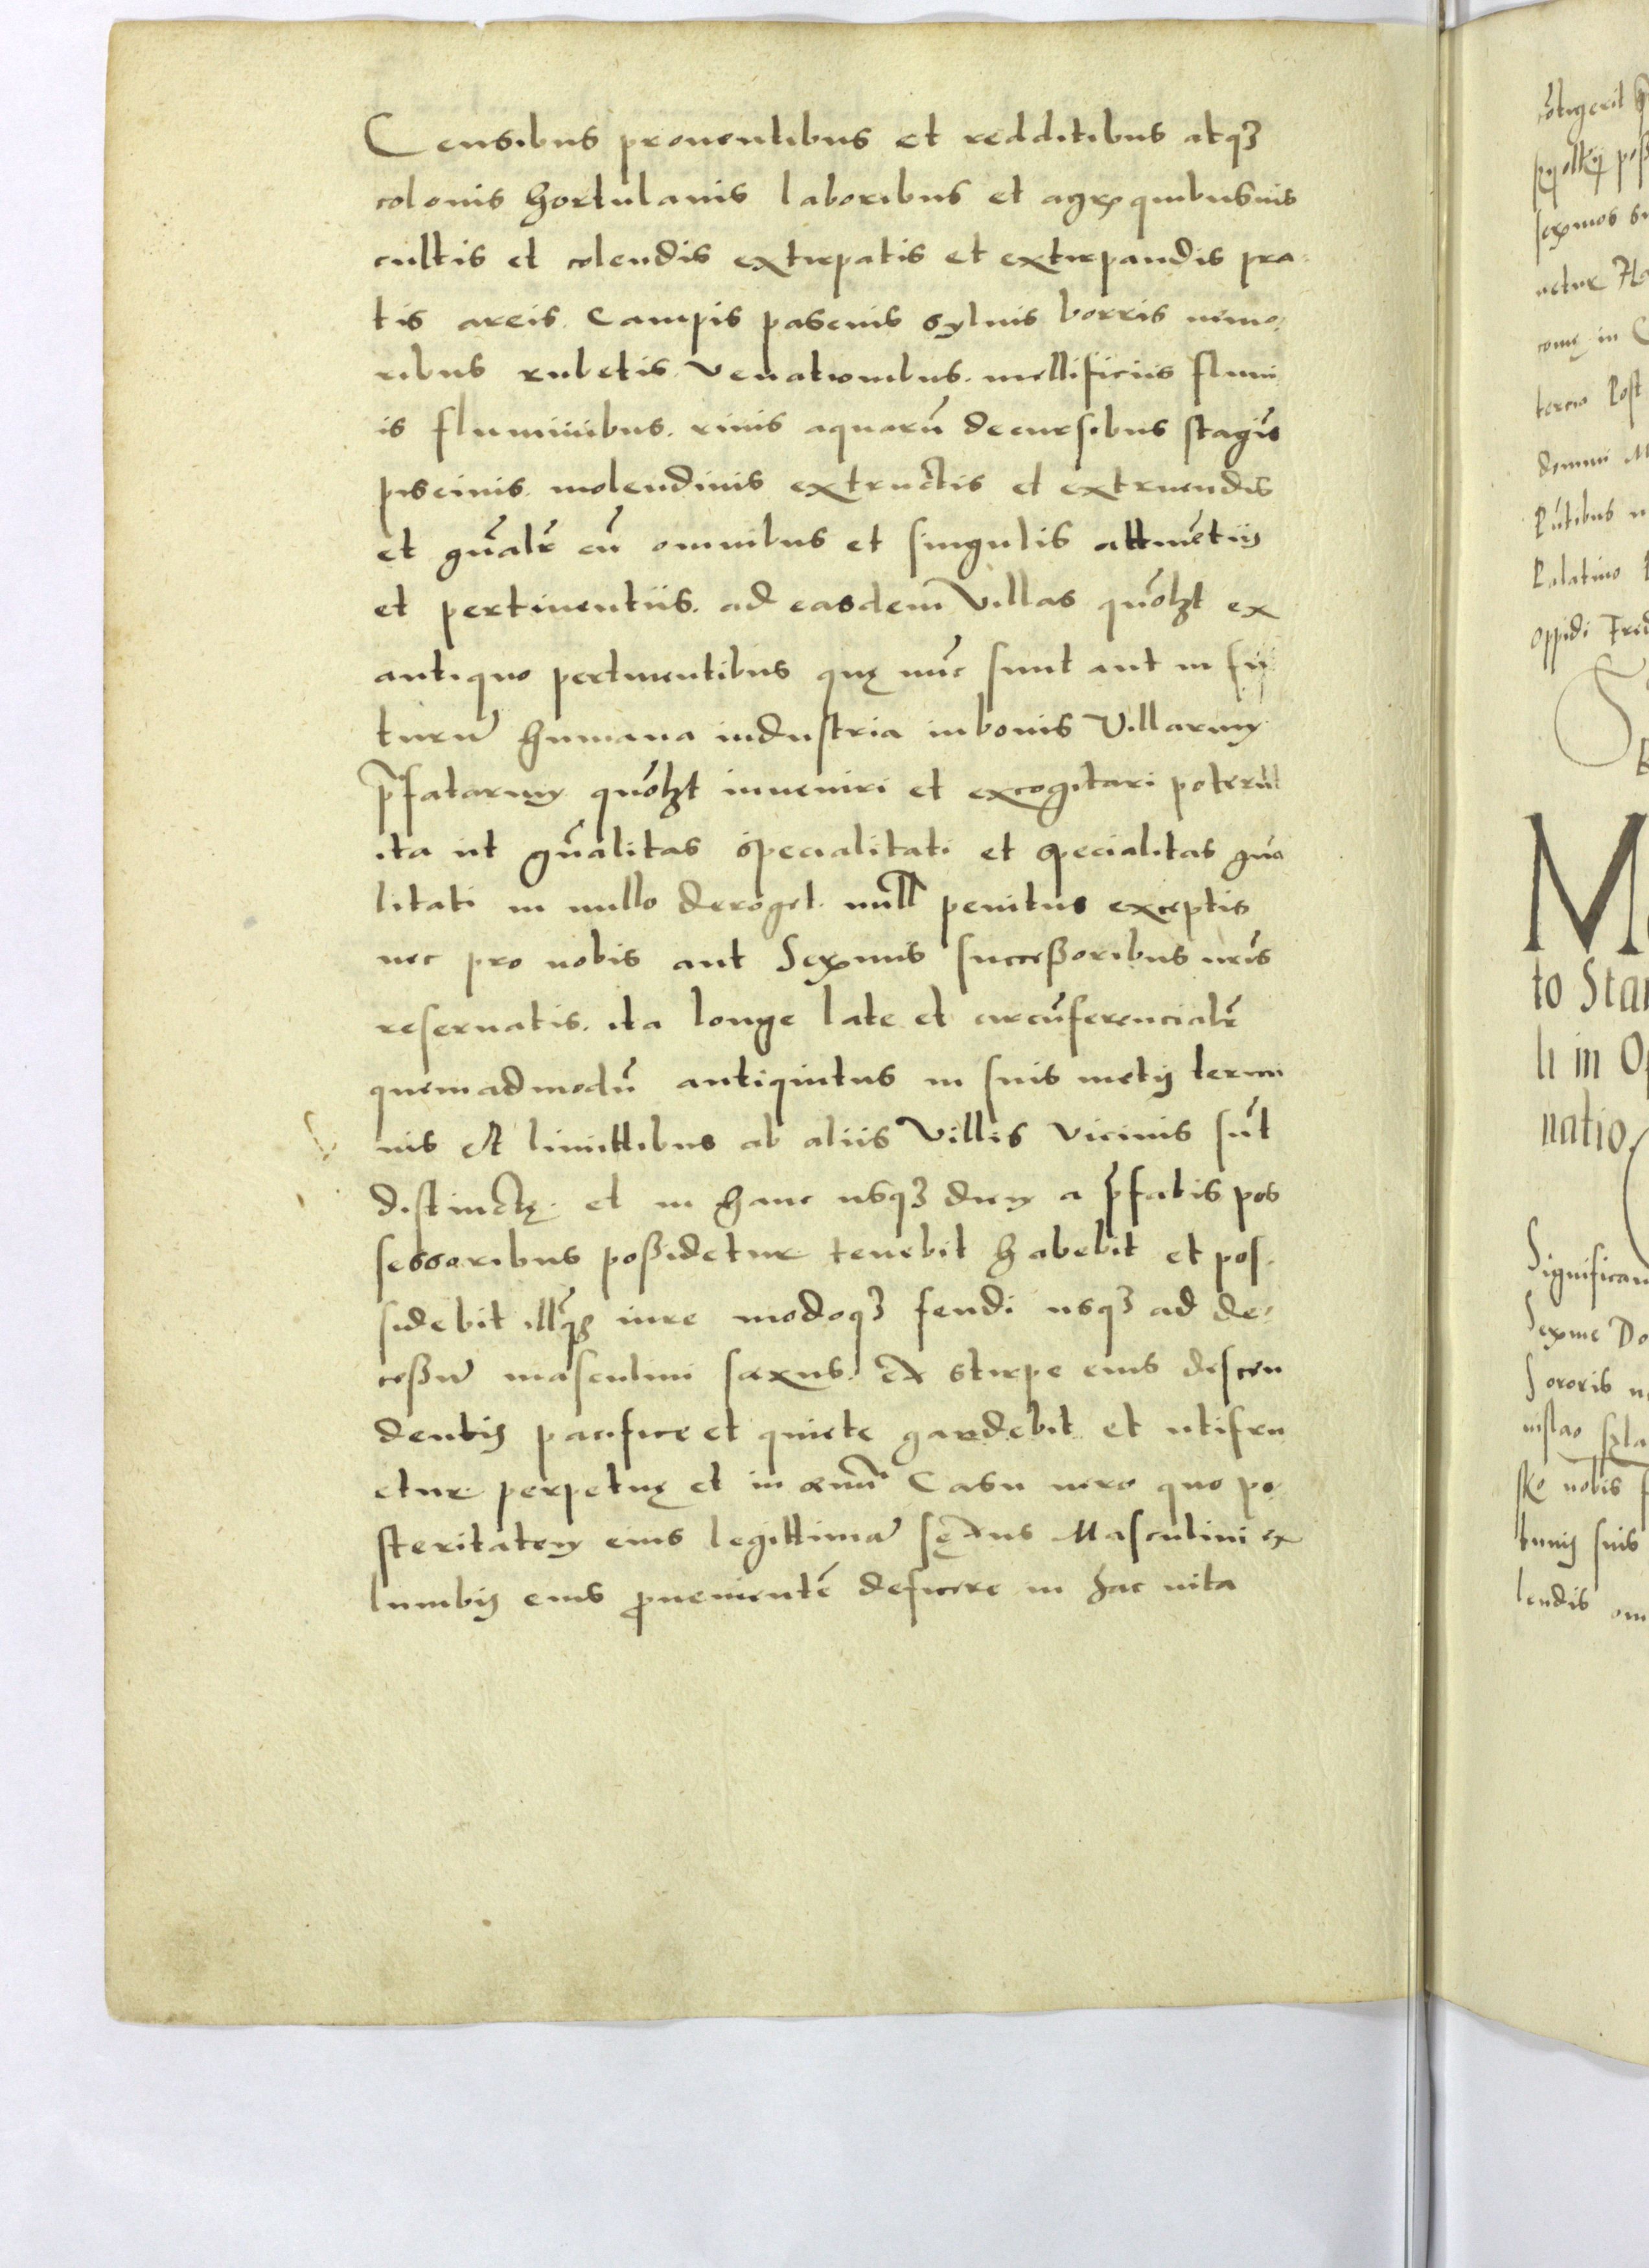 Censibus prouentibus et redditibus atqꝫ
colonis hortulanis laboribus et agrꝫ quibusuis
cultis et colendis extirpatis et extirpandis pra-
tis areis. Campis pascuis syluis borris nemo-
ribus rubetis. Venationibus. mellificiis fluui
is fluminibus. riuis aquarū decursibus stagīs
piscinis. molendinis extructis et extruendis
et gn̄alr̄ cū omnibus et singulis attinētiis
et pertinentiis. ad easdem Villas quōlꝫt ex
antiquo pertinentibus quę nūc sunt aut in fu
turum humana industria in bonis Villarum
p̄fatarum quōlꝫt inueniri et excogitari poterūt
ita ut gn̄alitas specialitati et specialitas gn̄a
litati in nullo deroget. null penitus exceptis
nec pro nobis aut Serenis successoribus nr̄is
reseruatis. ita longe late et circūferencialr̄
quemadmodū antiquitus in suis metis termi
nis et limittibus ab aliis Villis Vicinis sūt
distinctę. et in hanc usqꝫ diem a p̄fatis pos
sessoribus possidetur tenebit habebit et pos-
sidebit illꝗꝫ iure modoqꝫ feudi usqꝫ ad de-
cessum masculini sexus. Ex stirpe eius descen
dentis pacifice et quiete gaudebit et utifru
etur perpetuę et in æuū. Casu uero quo po-
steritatem eius legittimam sęxus Masculini ex
lumbis eius ꝓuenientē deficere in hac uita
oppidi
M
to Sta
li in O
natio
Significam
Sororis
nobis